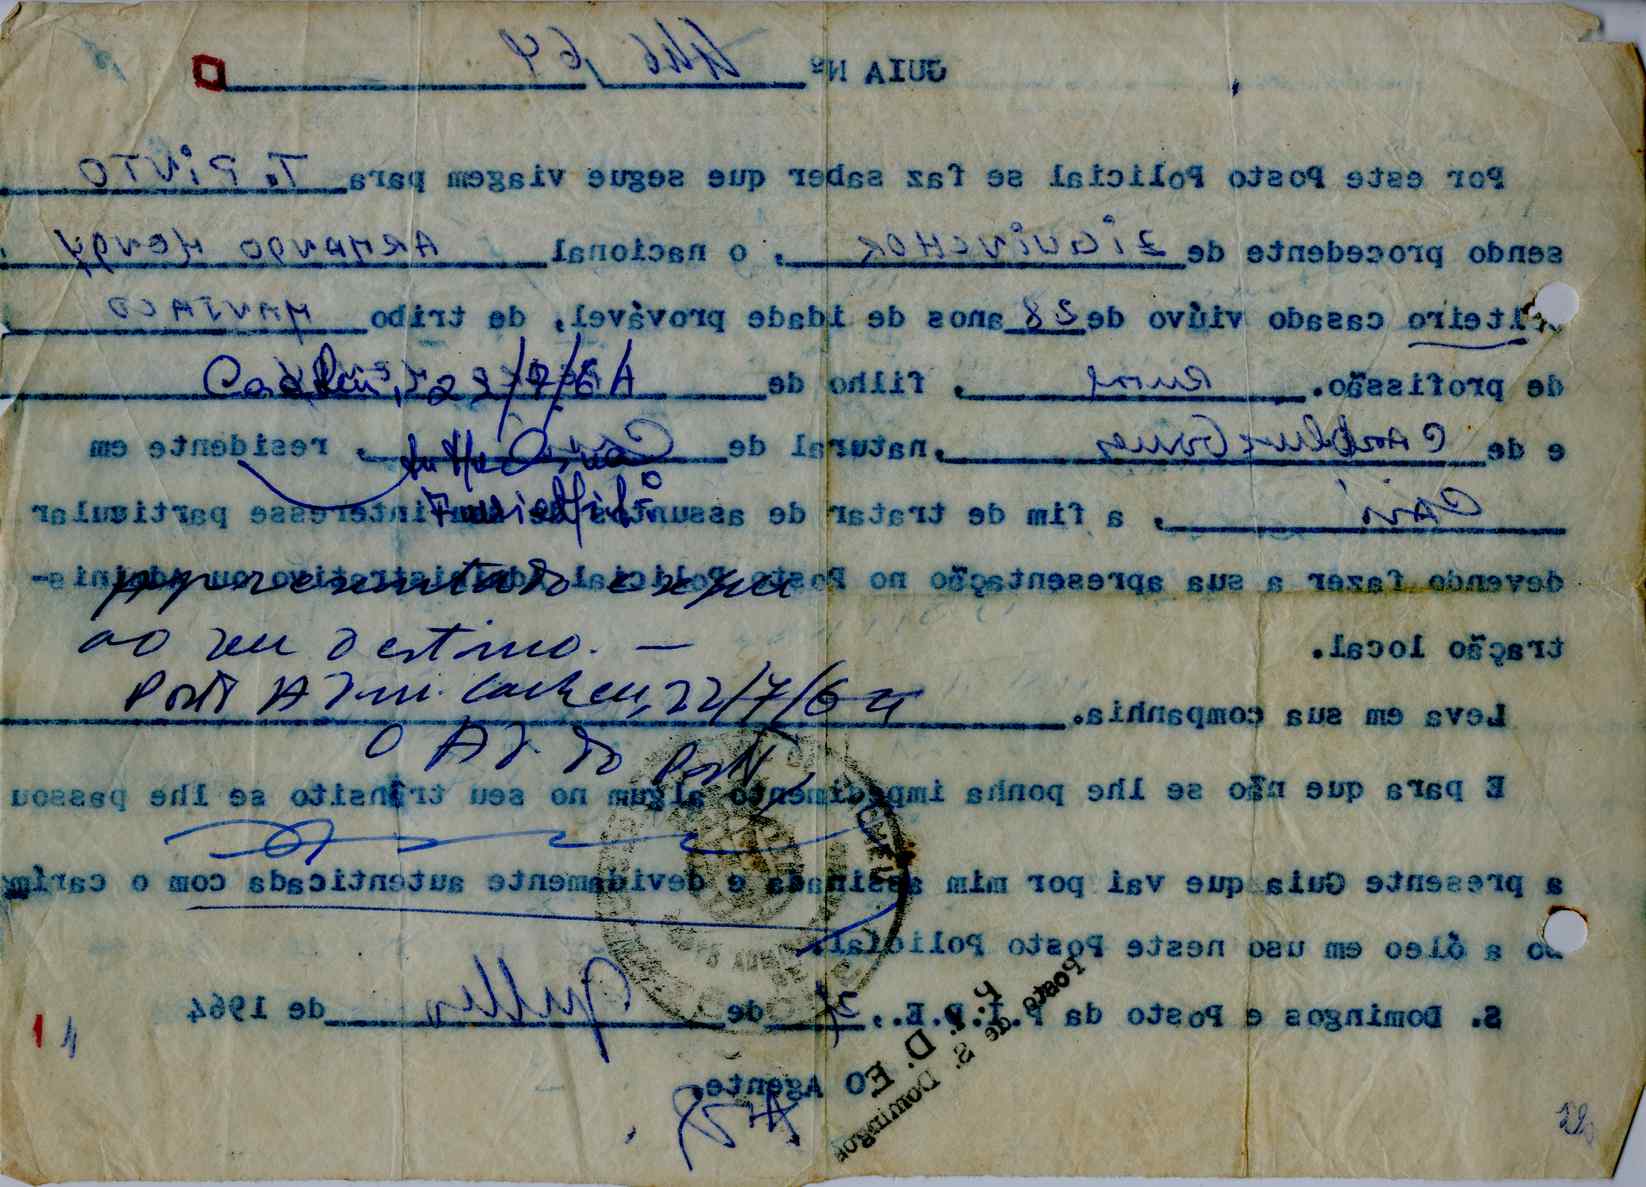 GUIA Nº 446/64
Por este Posto Policial se faz saber que segue viagem para T. PiNTO
sendo procedente de ZIGUINCHOR, o nacional ARMANDO Mendy
solteiro casado viúvo de 28 anos de idade provável, de tribo MANJACO
de profissão. Rural, filho de
Cacheu, 22/7/64
e de Gomes, natural de Caió, residente em
Caió, a fim de tratar de assuntos de seu interesse particular
devendo fazer a sua apresentação no Posto Policial Administrativo ou Adminis-
tração local.
apresentado e segue
ao seu destino. —
Posto Adm. Cacheu, 22/7/64
O Ad do Posto
Leva em sua companhia.
E para que não se lhe ponha impedimento algum no seu trânsito se lhe passou
a presente Guia que vai por mim assinada e devidamente autenticada com o carim
do a óleo em uso neste Posto Policial.
S. Domingos e Posto da P.I.D.E., de Julho de 1964
O Agente,
P. I. D. E
Posto de S. Domingos
14